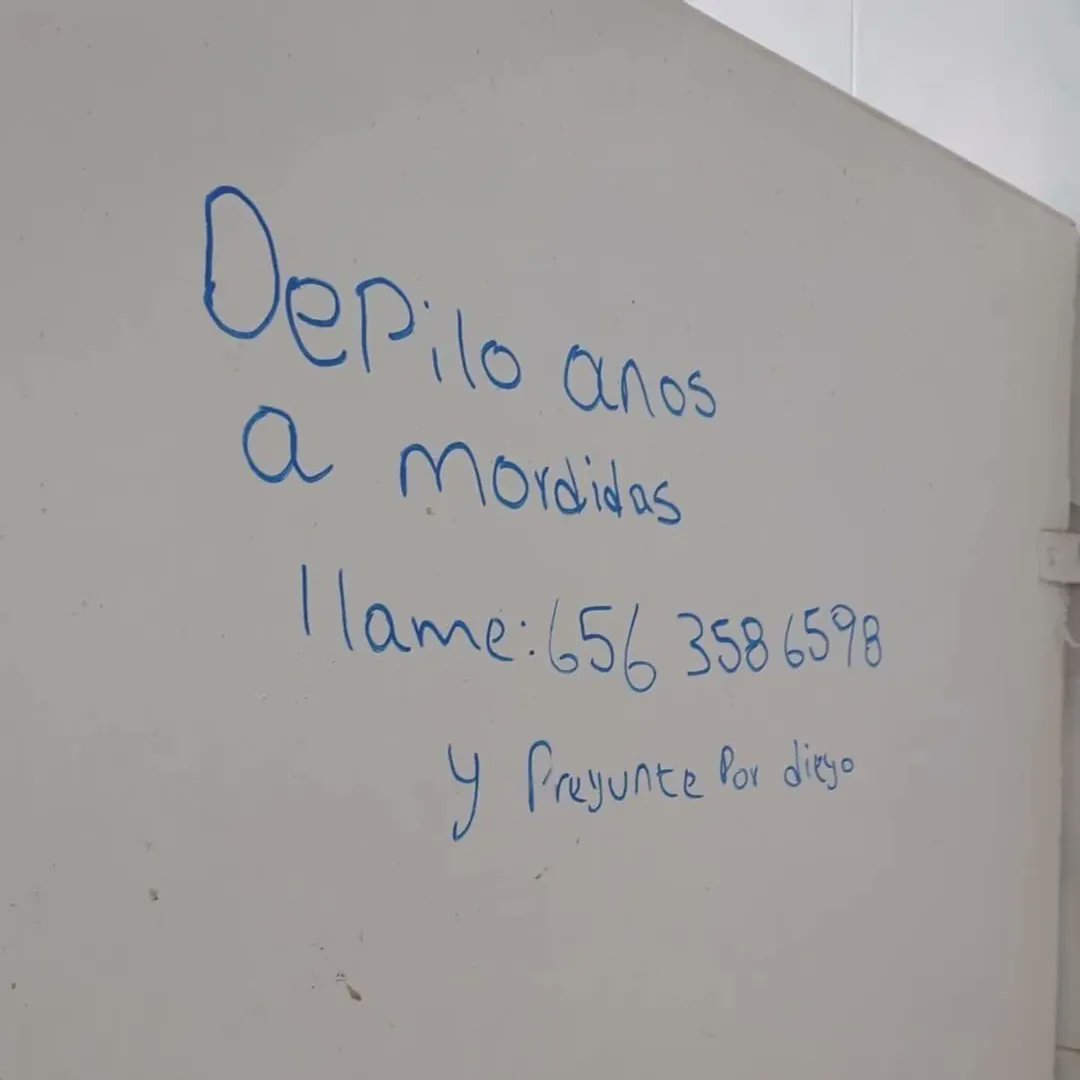 Depilo anos
a mordidas
llame: 656 3586598
y Pregunte Por diego